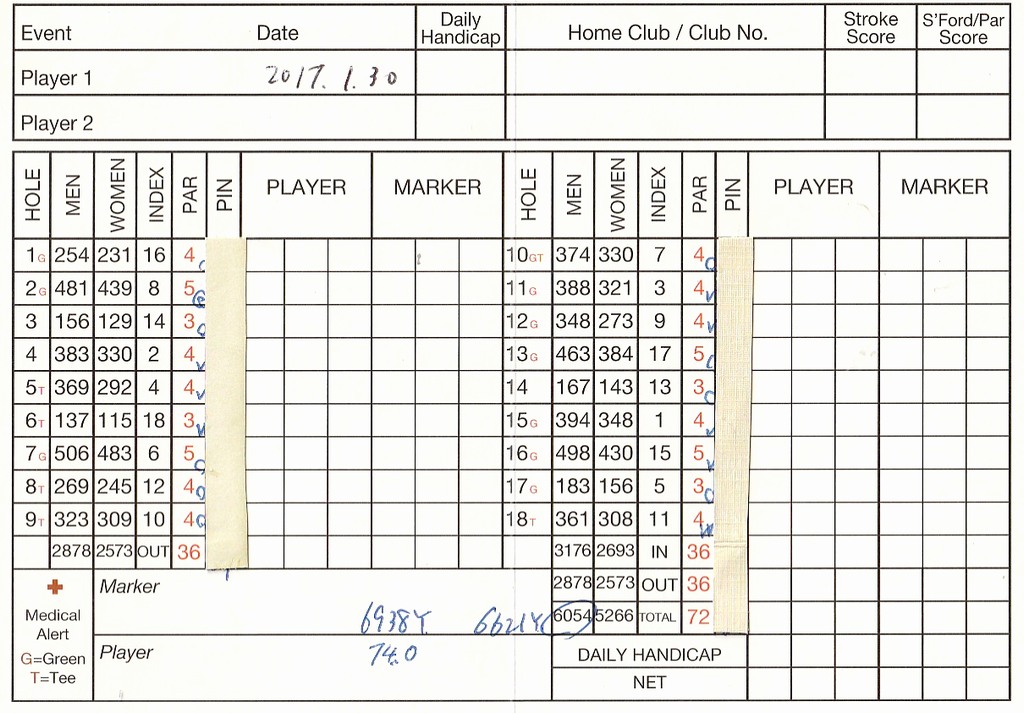 Event Date Daily Handicap Home Club / Club No. Stroke Score S'Ford/Par Score
Player 1 2017. 1. 30
Player 2
HOLE MEN WOMEN INDEX PAR PIN PLAYER MARKER HOLE MEN WOMEN INDEX PAR PIN PLAYER MARKER
1G 254 231 16 4 10GT 374 330 7 4
2G 481 439 8 5 11G 388 321 3 4
3 156 129 14 3 12G 348 273 9 4
4 383 330 2 4 13G 463 384 17 5
5T 369 292 4 4 14 167 143 13 3
6T 137 115 18 3 15G 394 348 1 4
7G 506 483 6 5 16G 498 430 15 5
8T 269 245 12 4 17G 183 156 5 3
9T 323 309 10 4 18T 361 308 11 4
2878 2573 OUT 36 3176 2693 IN 36
Marker 2878 2573 OUT 36
Medical Alert 6938Y. 6621Y 6054 5266 TOTAL 72
G=Green
T=Tee
Player 74.0 DAILY HANDICAP
NET